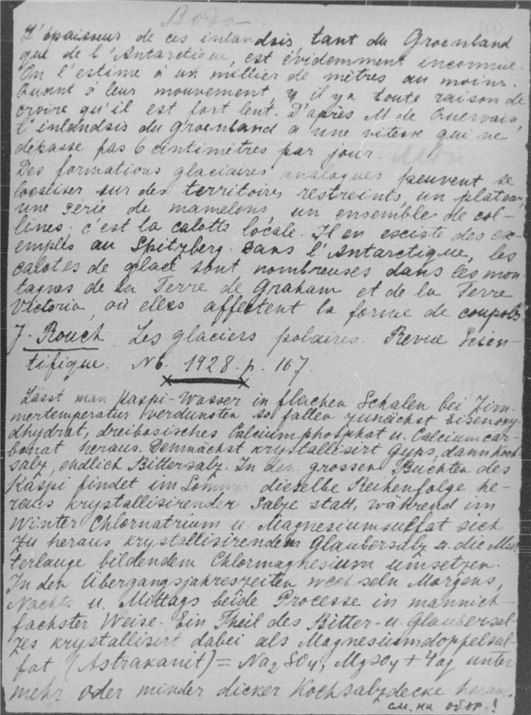 Вода
L'épaisseur de ces inlandsis tant du Groenland
que de l'Antarctique, est évidemment inconnue.
On l'estime à un millier de mètres au moins.
Quant à leur mouvement y il y a toute raison de
croire qu'il est fort lent. D'après M de Quervain
l'inlandsis du Groenland a une vitesse qui ne
dépasse pas 6 centimètres par jour.
Des formations glaciaires analogues peuvent se
localiser sur des territoires restreints, un plateau,
une série de mamelons un ensemble de col-
lines; c'est la calotte locale. Il en existe des ex-
emples au Spitzberg. Dans l'Antarctique, les
calottes de glace sont nombreuses dans les mon
tagnes de la Terre de Graham et de la Terre
Victoria, où elles affectent la forme de coupoles
J. Rouch. Les glaciers polaires. Revue Scien-
tifique. N6. 1928. p. 167.
Lässt man Kaspi-Wasser in flachen Schalen bei Zim-
mertemperatur verdunsten so fallen zunächst Eisenoxy-
dhydrat, dreibasisches Calciumphosphat u. Calciumcar-
bonat heraus. Demnächst krystallisirt Gyps, dann Koch
salz, endlich Bittersalz. In den grossen Buchten des
Kaspi findet im Sommer dieselbe Reihenfolge he-
raus krystallisirender Salze statt, während im
Winter Chlornatrium u. Magnesiumsulfat sich
zu heraus krystallisirendem Glaubersalz u. die Mut
terlauge bildendem Chlormagnesium umsetzen.
In den Übergangsjahreszeiten wechseln Morgens,
Nachts u. Mittags beide Processe in mannich-
fachster Weise. Ein Theil des Bitter- u. Glaubersal-
zes krystallisirt dabei als Magnesiumdoppelsul-
fat (Astrakanit) = Na2 SO4, MgSO4 + 4aq unter
mehr oder minder dicker Kochsalzdecke heraus.
см. на обор.!